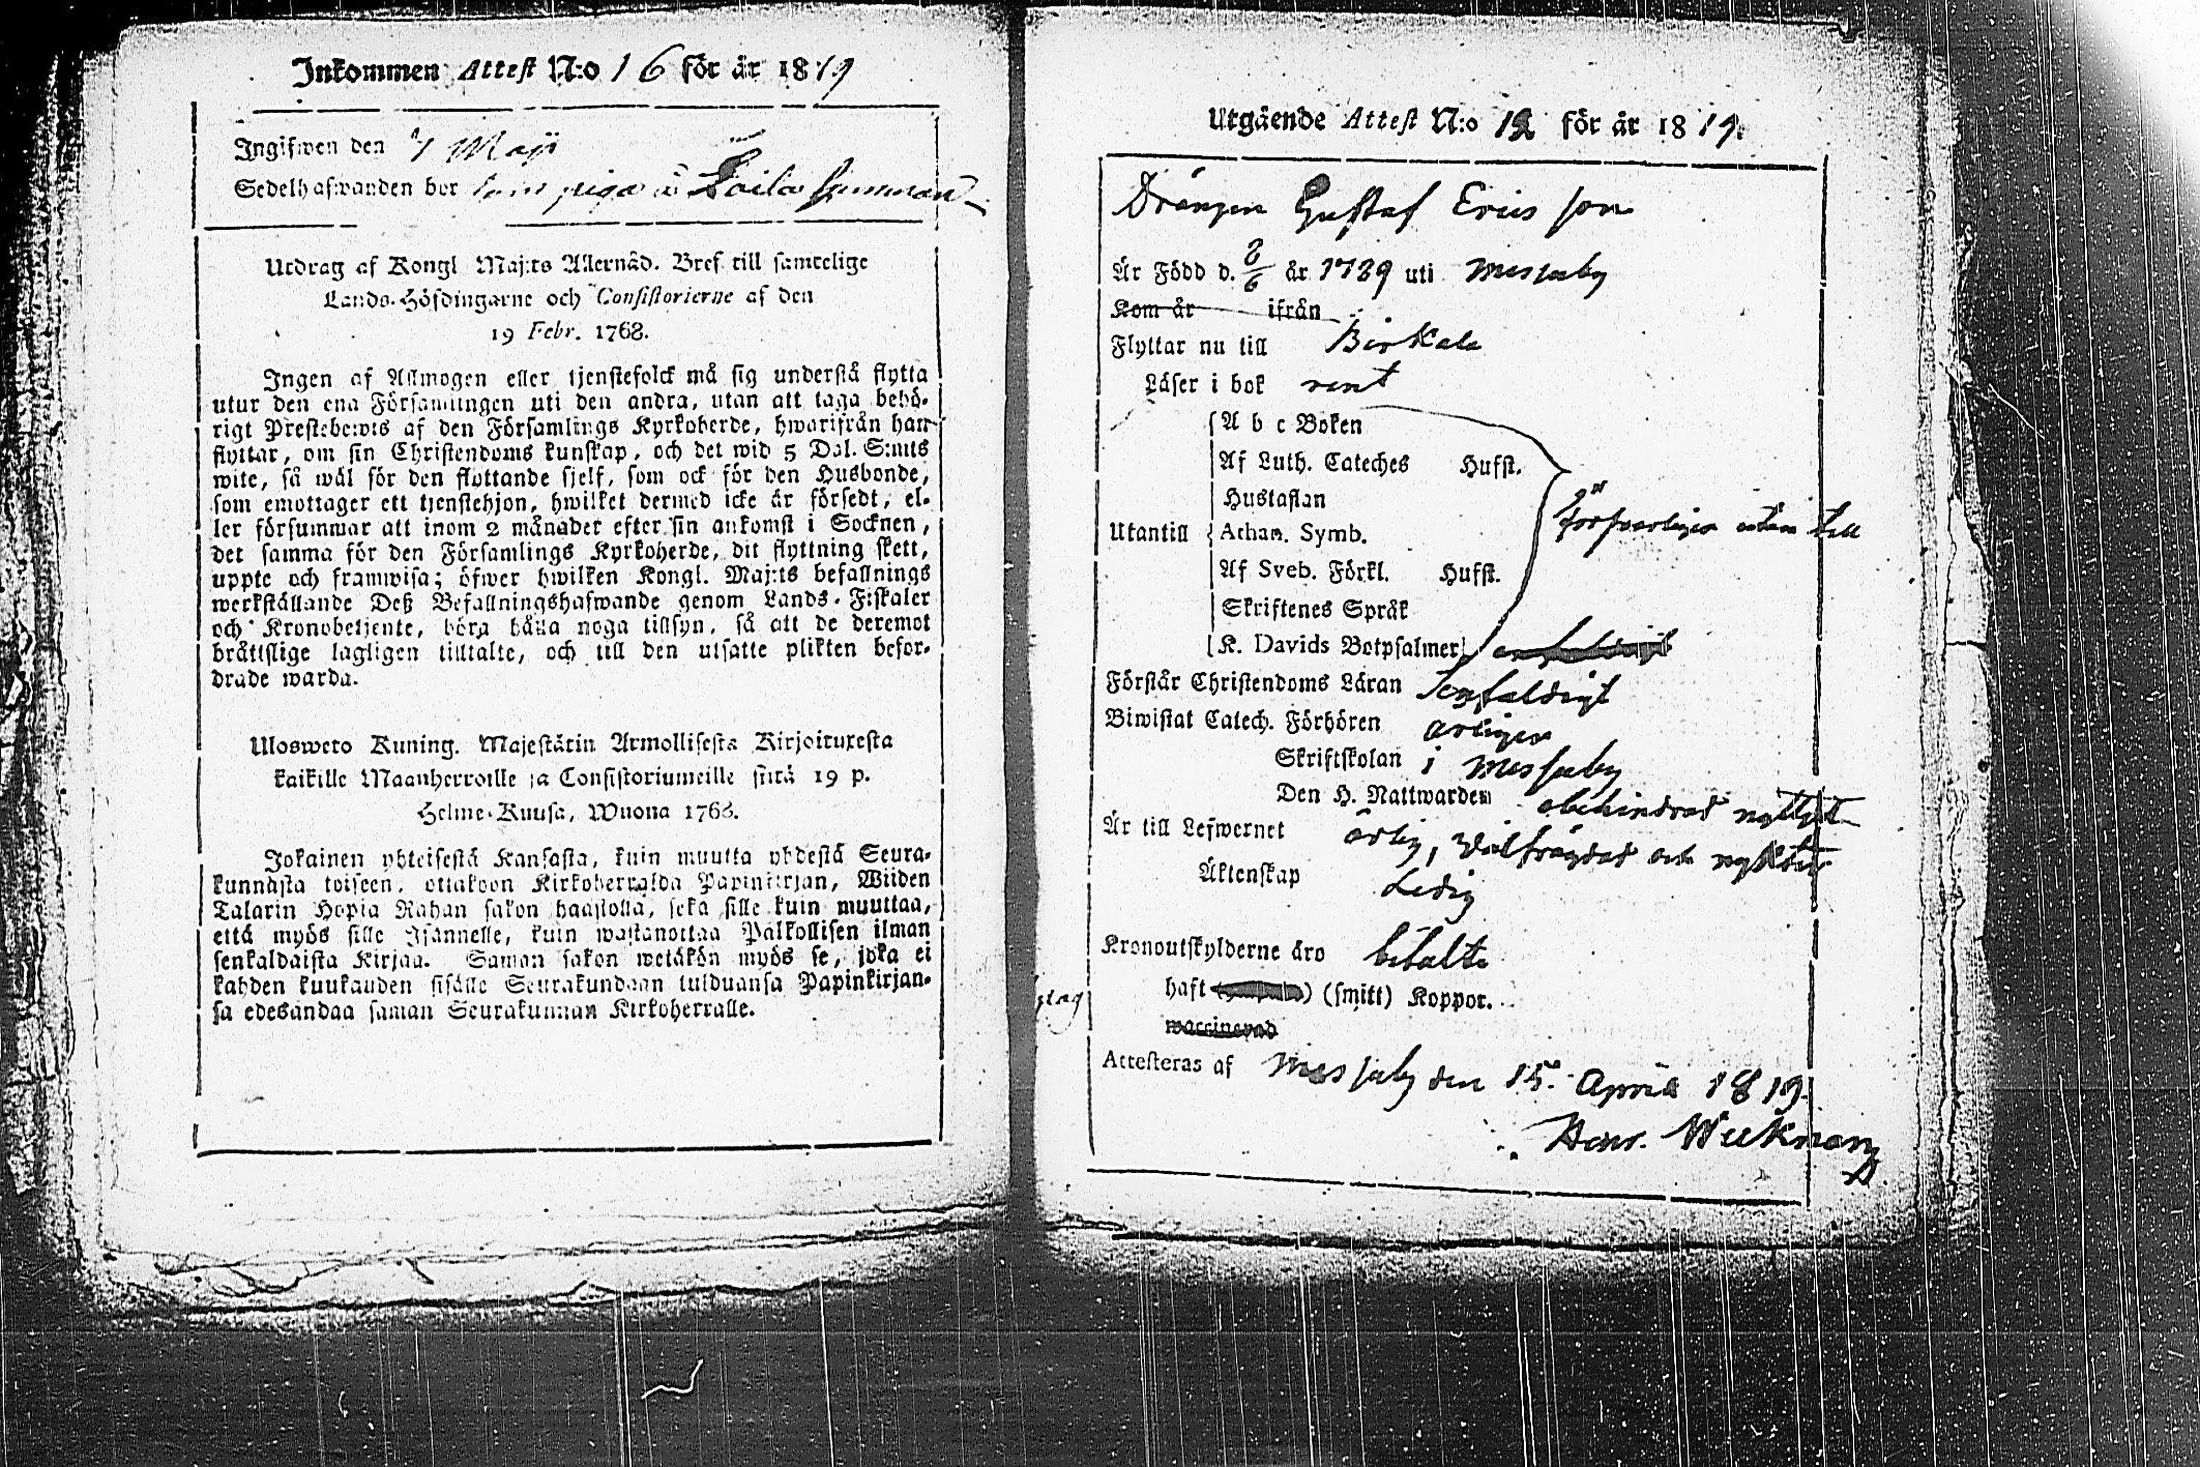 Inkommen Attest N:o 16 för år 1819
Ingifwen den 7 Maji
Sedelhafwanden bor som piga å Laila
Utdrag af Kongl Maj:ts Allernåd. Bref till samtelige
Lands-Höfdingarne och Consistorierne af den
19 Febr. 1768.
Ingen af Allmogen eller tjenstefolck må sig understå flytta
utur den ena Församlingen uti den andra, utan att taga behö-
rigt Prestebewis af den Församlings Kyrkoherde, hwarifrån han
flyttar, om sin Christendoms kunskap, och det wid 5 Dal. S:mts
wite, så wäl för den flyttande sjelf, som ock för den Husbonde,
som emottager ett tjenstehjon, hwilket dermed icke är försedt, el-
ler försummar att inom 2 månader efter sin ankomst i Socknen,
det samma för den Församlings Kyrkoherde, dit flyttning skett,
uppte och framwisa; öfwer hwilken Kongl. Maj:ts befallnings
werkställande Deß Befallningshafwande genom Lands-Fiskaler
och Kronobetjente, böra hålla noga tillsyn, så att de deremot
bråttslige lagligen tilltalte, och till den utsatte plikten befor-
drade warda.
Ulosweto Kuning. Majestätin Armollisesta Kirjoituxesta
kaikille Maanherroille ja Consistoriumeille siitä 19 p.
Helme-Kuusa, Wuona 1768.
Jokainen yhteisestä Kansasta, kuin muutta yhdestä Seura-
kunnasta toiseen, ottakoon Kirkoherralda Papinkirjan, Wiiden
Talarin Hopia Rahan sakon haastolla, sekä sille kuin muuttaa,
että myös sille Isännelle, kuin wastanottaa Palkollisen ilman
senkaldaista Kirjaa. Saman sakon wetäkön myös se, joka ei
kahden kuukauden sisälle Seurakundaan tulduansa Papinkirjan-
sa edesandaa saman Seurakunnan Kirkoherralle.
Utgående Attest N:o 12 för år 1819.
Drängen Gustaf Ericsson
Är Född d. 8/6 år 1789 uti Messuby
Kom år ifrån
Flyttar nu till Birkala
Läser i bok rent
A b c Boken
Af Luth. Cateches Hufst.
Hustaflan
försvarligen utan till
Utantill Athan. Symb.
Af Sveb. Förkl. Hufst.
Skriftenes Språk
K. Davids Botpsalmer
Förstår Christendoms Läran enfaldigt
Biwistat Catech. Förhören årligen
Skriftskolan i Messuby
Den H. Nattwarden obehindrad nyttjat
Är till Lefwernet ärlig, välfrägdad och nykter
Äktenskap Ledig
Kronoutskylderne äro betalte
haft (smitt) Koppor.
waccinerad
Attesteras af Messuby den 15. April 1819.
Henr. Wiekman